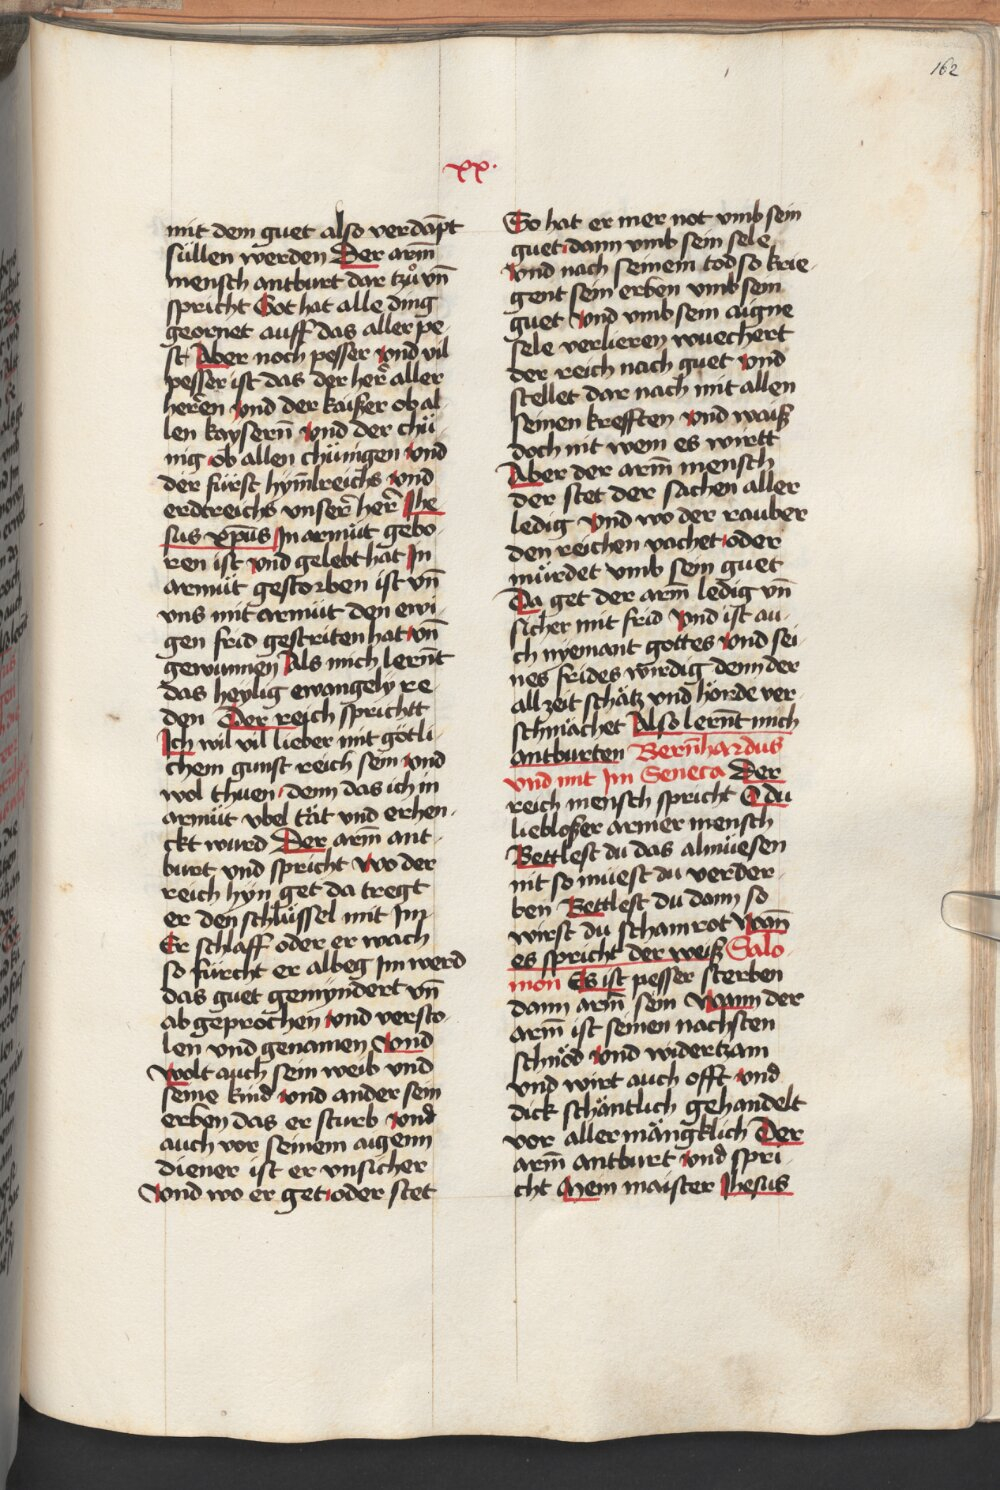 162
xx·
mit dem guet also verdāpt
süllen werden Der arm̄
mensch antburt dar tzů vn̄
spricht Got hat alle ding
geornet auff das aller pe-
st Aber noch pesser vnd vil
pesser ist das der her̄ aller
herēn vnd der kaißer ob al-
len kaysern̄ vnd der chü-
nig ob allen chünigen vnd
der fürst hym̄lreichs vnd
erdtreichs vnser̄ her̄ Jhe
sus xp̄us In armüt gebo-
ren ist vnd gelebt hat In
armüt gestorben ist vn̄
vns mit armüt den ewi-
gen frid gestriten hat vn̄
gewunnen Als mich lernt
das heylig ewangely re-
den Der reich sprichtt
Ich wil vil lieber mit götli-
chem gunst reich sein vnd
wol thuen denn das ich in
armüt vbel tät vnd erhen-
ckt wurd Der arm̄ ant-
burt vnd spricht wo der
reich hyn get da tregt
er den schlüssel mit Im
Er schlaff oder er wach
so fürcht er albeg Im werd
das guet gemyndert vn̄
ab geprochen vnd versto-
len vnd genamen Vnd
wolt auch sein weib vnd
seine kind vnd ander sein
erben das er sturb vnd
auch vor seinem aigenn
diener ist er vnsicher
Vnd wo er get oder stet
So hat er mer not vmb sein
guet dann vmb sein sele
vnd nach seinem tod so krie-
gent sein erben vmb sein
guet Vnd vmb sein aigne
sele verlieren wuechert
der reich nach guet vnd
stellet dar nach mit allen
seinen krefften vnd waiß
doch nit wem es wirtt
Aber der arm̄ mensch
der stet der sachen aller
ledig vnd wo der rauber
den reichen vachet oder
mürdet vmb sein guet
Da get der arm̄ ledig vn̄
sicher mit frid Vnd ist au-
ch nyemant gottes vnd sei-
nes frides wirdig denn der
all zeit schätz vnd hörde ver-
schmächet Also lernt mich
antburten Bern̄hardus
vnd mit Im Seneca Der
reich mensch spricht O du
liebloßer armer mensch
Bettlest du das almüesen
nit so müest du verder-
ben Bettlest du dann so
wirst du schamrot wan̄
es spricht der weiß Salo-
mon Es ist pesser sterben
dann arm̄ sein Wann der
arm̄ ist seinen nachsten
schnöd vnd widertzam
vnd wirt auch offt vnd
dick schäntlich gehandelt
vor aller mängklich Der
arm̄ antburt vnd spri-
cht Mein maister Jhesus